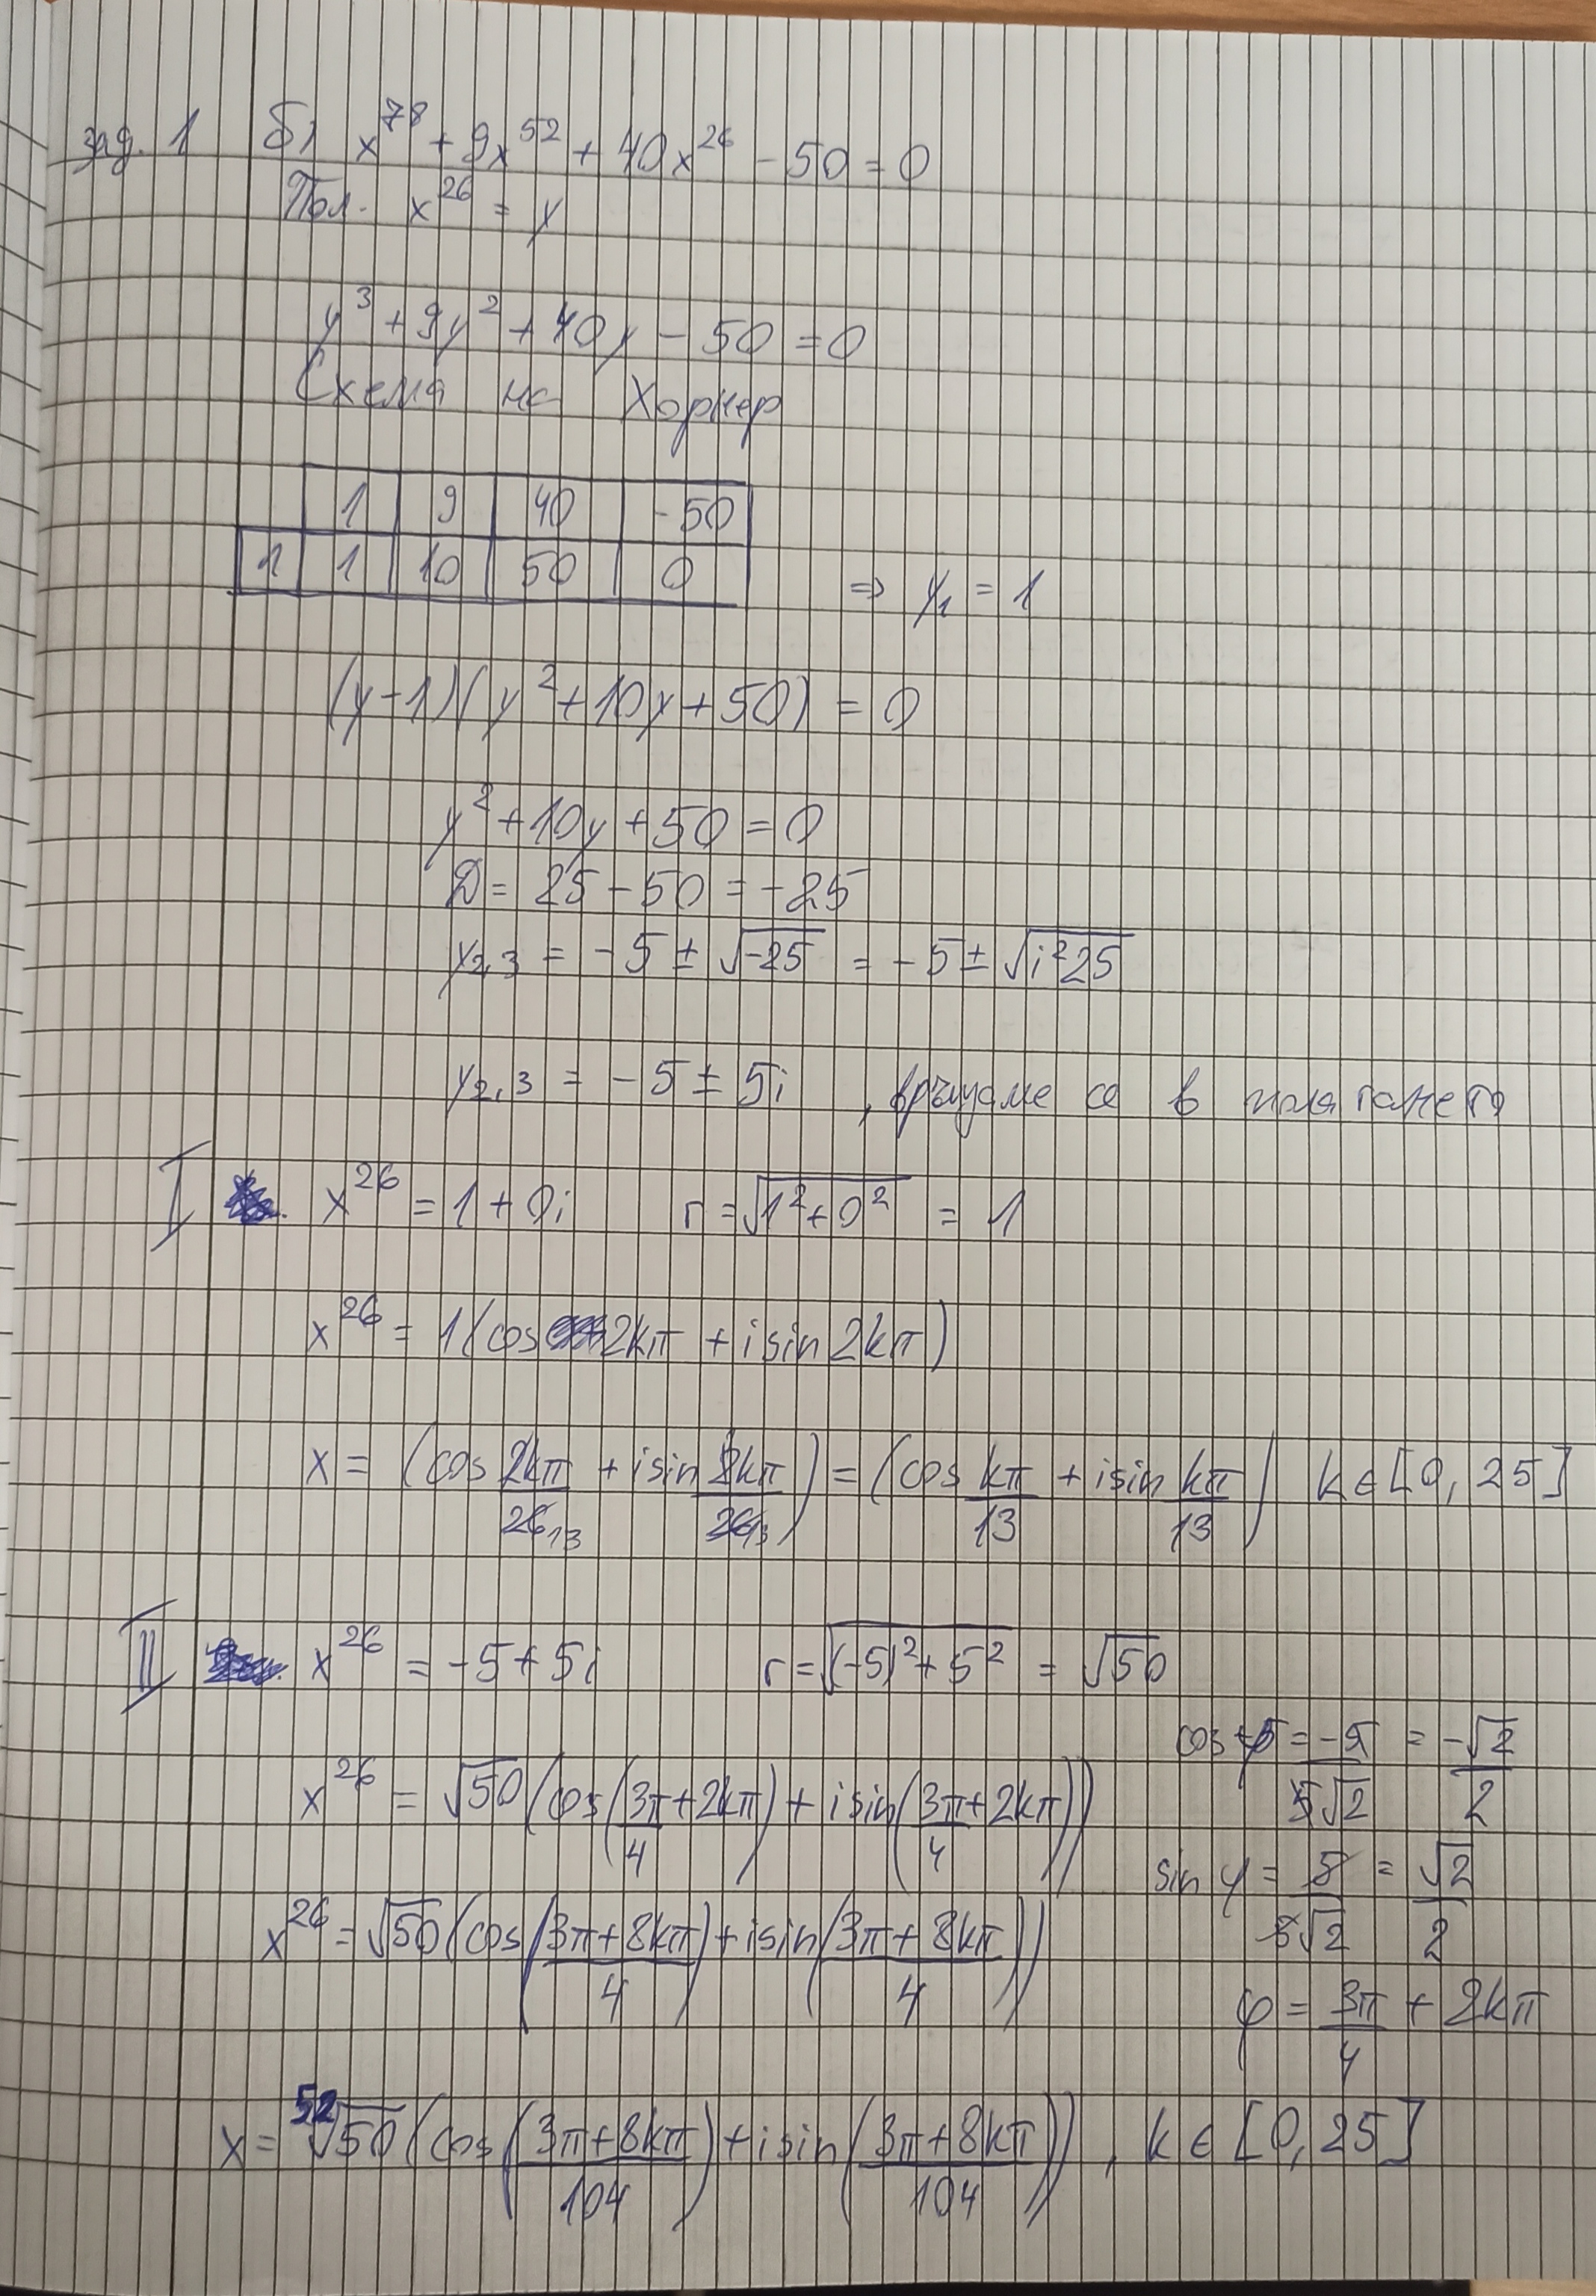 зад. 1 б) x^78 + 9x^52 + 40x^26 - 50 = 0
Пол. x^26 = y
y^3 + 9y^2 + 40y - 50 = 0
Схема на Хорнер
1 9 40 -50
1 1 10 50 0 ⇒ y₁ = 1
(y-1)(y^2 + 10y + 50) = 0
y^2 + 10y + 50 = 0
D = 25 - 50 = -25
y₂,₃ = -5 ± √(-25) = -5 ± √(i^2 25)
y₂,₃ = -5 ± 5i , връщаме се в полагането
I x^26 = 1 + 0i r = √(1^2 + 0^2) = 1
x^26 = 1(cos 2kπ + i sin 2kπ)
x = (cos 2kπ/26 13 + i sin 2kπ/26 13) = (cos kπ/13 + i sin kπ/13) k ∈ [0, 25]
II x^26 = -5 + 5i r = √((-5)^2 + 5^2) = √50
cos φ = -5/5√2 = -√2/2
x^26 = √50 (cos(3π/4 + 2kπ) + i sin(3π/4 + 2kπ))
sin φ = 5/5√2 = √2/2
x^26 = √50 (cos((3π + 8kπ)/4) + i sin((3π + 8kπ)/4))
φ = 3π/4 + 2kπ
x = ⁵²√50 (cos((3π + 8kπ)/104) + i sin((3π + 8kπ)/104)) , k ∈ [0, 25]